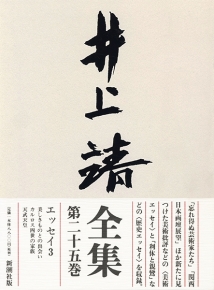 井上靖
全集
第二十五巻
エッセイ3
美しきものとの出会い
カルロス四世の家族
天武天皇
「忘れ得ぬ芸術家たち」「関西
日本画壇展望」ほか新たに見
つけた美術批評などの〈美術
エッセイ〉と「西域と親鸞」な
どの〈歴史エッセイ〉を収録。
新潮社版